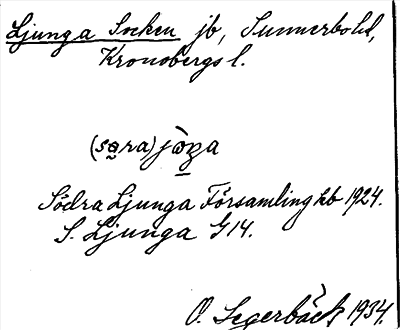 Ljunga Socken jb, Sunnerbohd,
Kronobergs l.
Södra Ljunga Församling hb 1924.
S. Ljunga G14.
O. Segerbäck 1934.